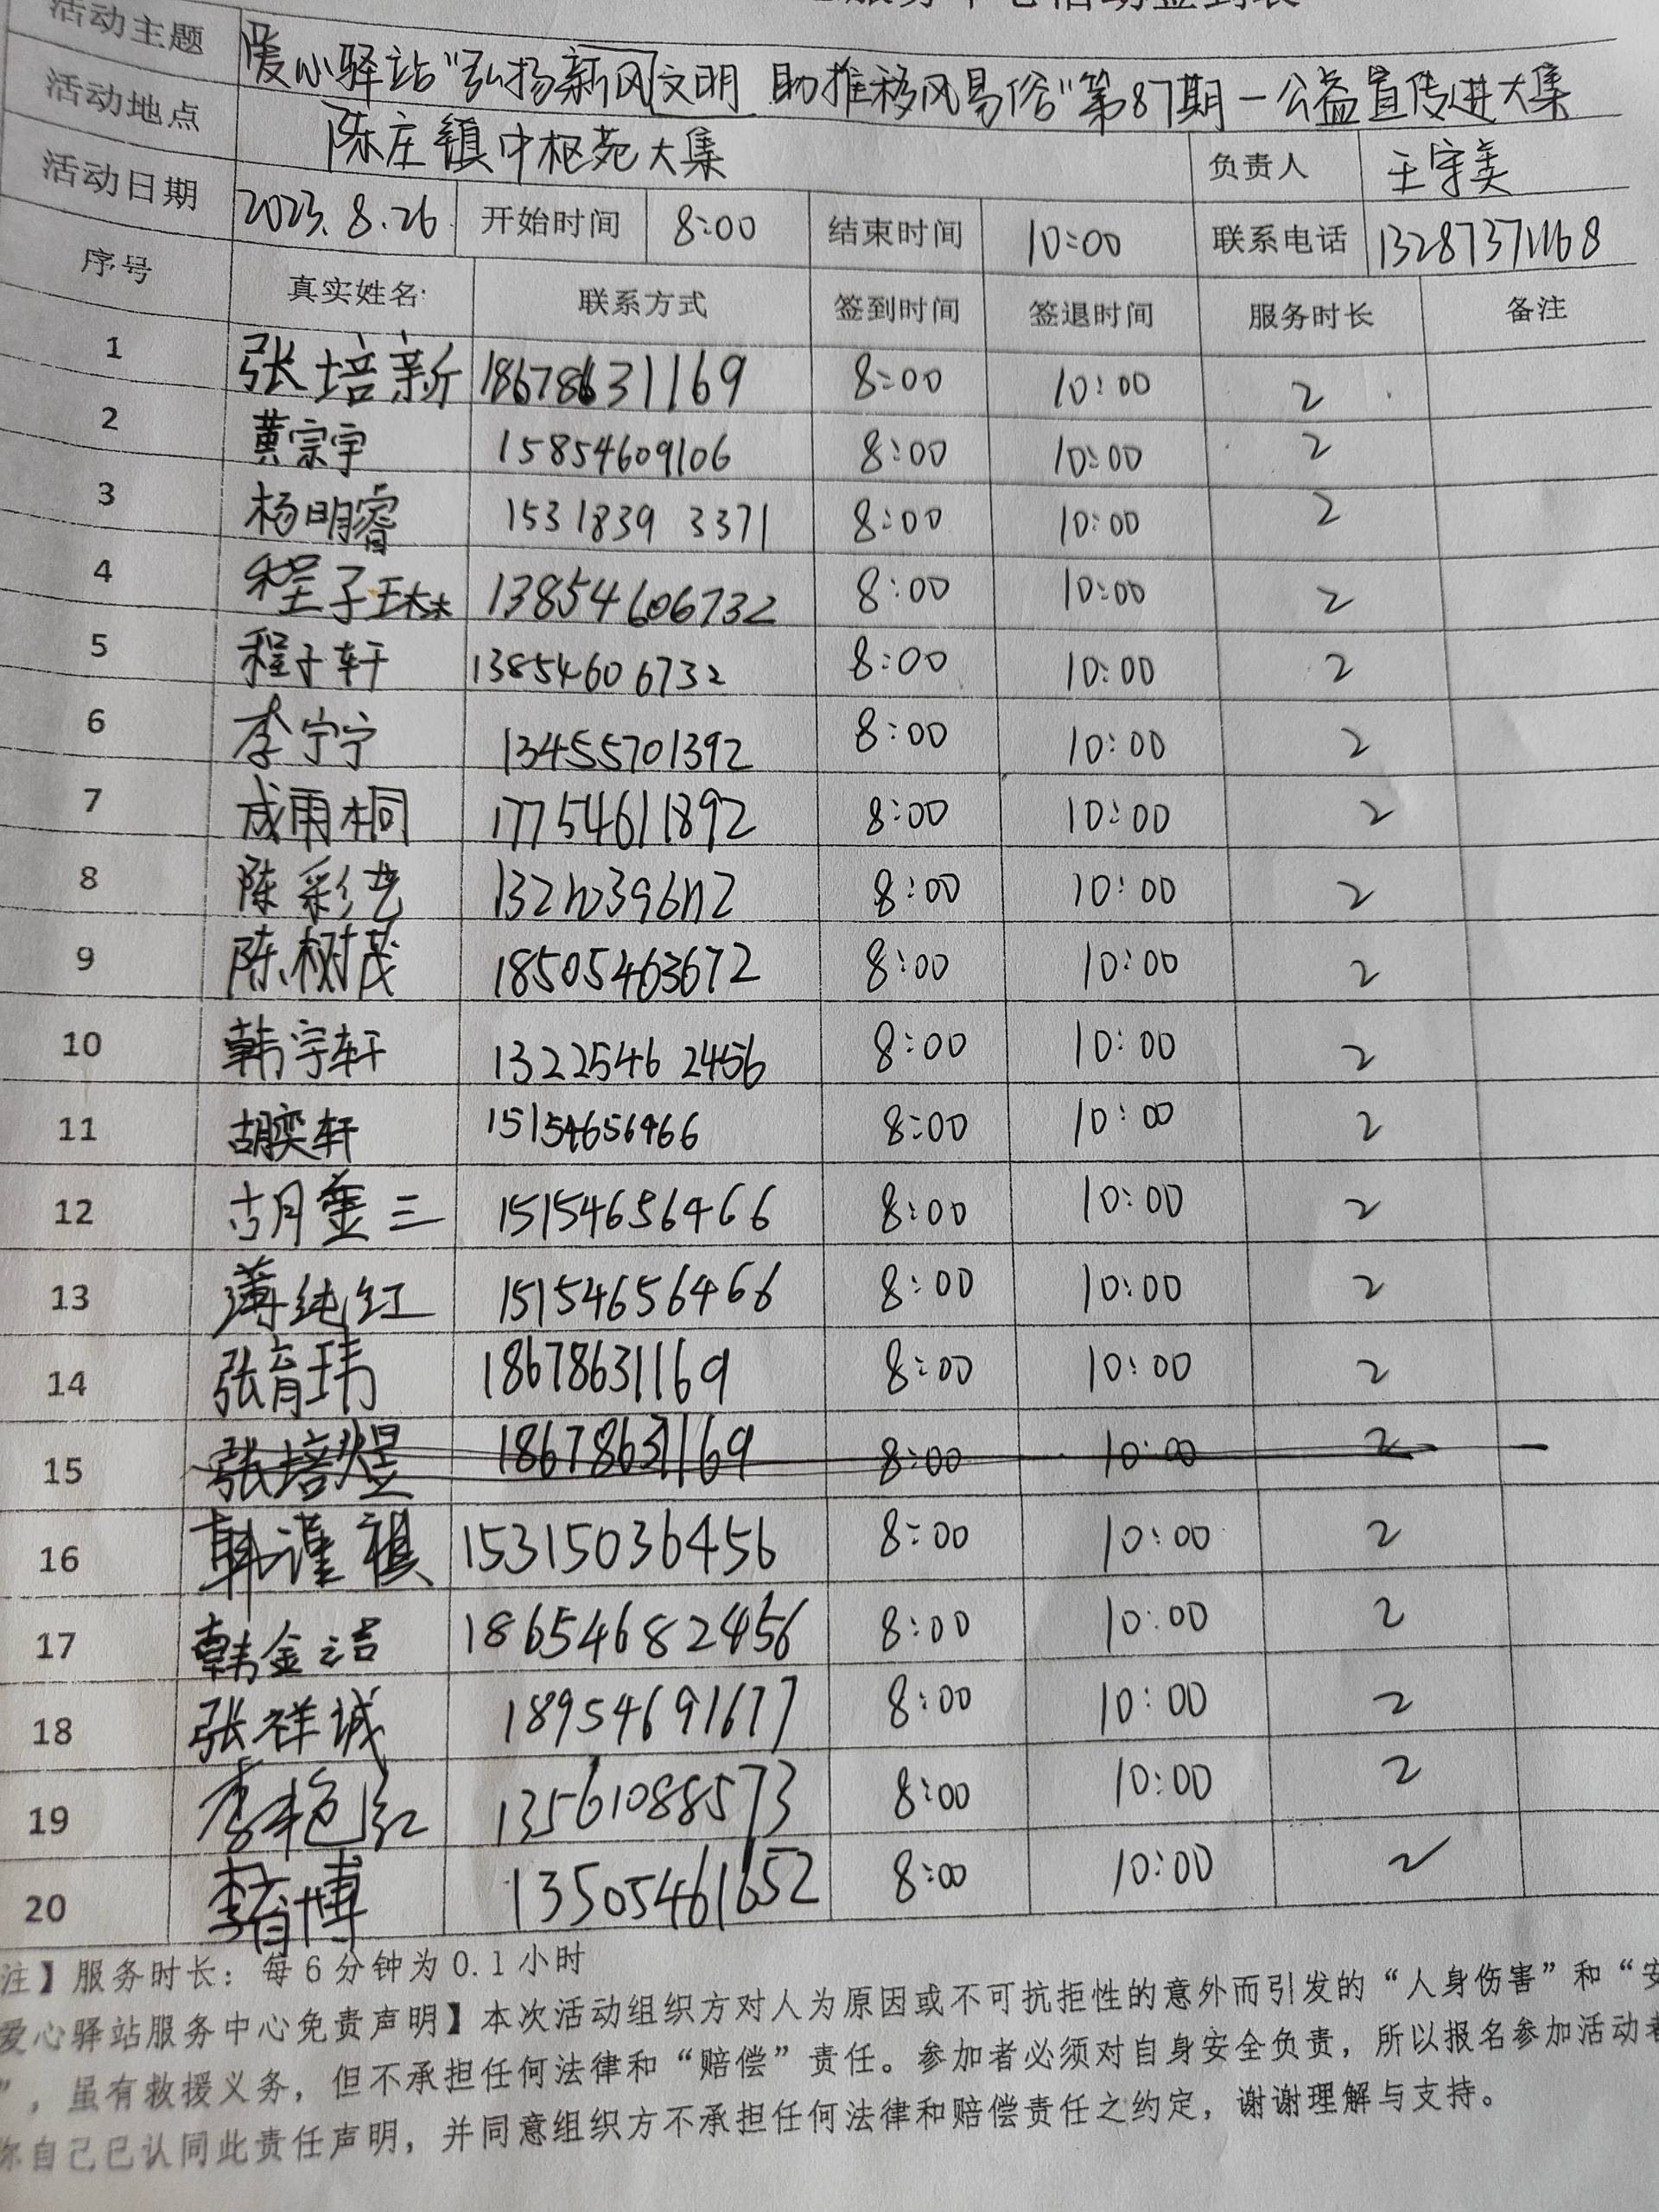 服务中心活动签到表
活动主题 爱心驿站"弘扬新风文明 助推移风易俗"第87期-公益宣传进大集
活动地点 陈庄镇中枢苑大集 负责人 王宇美
活动日期 2023.8.26 开始时间 8:00 结束时间 10:00 联系电话 13287371168
序号 真实姓名 联系方式 签到时间 签退时间 服务时长 备注
1 张培新 18678631169 8:00 10:00 2
2 黄宗宇 15854609106 8:00 10:00 2
3 杨明睿 1531839 3371 8:00 10:00 2
4 程子琳 13854606732 8:00 10:00 2
5 程子轩 13854606732 8:00 10:00 2
6 李宁宁 13455701392 8:00 10:00 2
7 成雨桐 17754611892 8:00 10:00 2
8 陈彩艺 8:00 10:00 2
9 陈树茂 18505463672 8:00 10:00 2
10 韩宇轩 1322546 2456 8:00 10:00 2
11 胡奕轩 15154656466 8:00 10:00 2
12 胡金三 15154656466 8:00 10:00 2
13 薄纯红 15154656466 8:00 10:00 2
14 张育玮 18678631169 8:00 10:00 2
15 张培煜 18678631169 8:00 10:00 2
16 韩谨祺 15315036456 8:00 10:00 2
17 韩金洁 18654682456 8:00 10:00 2
18 张祥诚 18954691677 8:00 10:00 2
19 李艳红 13561088573 8:00 10:00 2
20 李育博 13505461652 8:00 10:00 2
注】服务时长：每6分钟为0.1小时
爱心驿站服务中心免责声明】本次活动组织方对人为原因或不可抗拒性的意外而引发的“人身伤害”和“安
”，虽有救援义务，但不承担任何法律和“赔偿”责任。参加者必须对自身安全负责，所以报名参加活动者
你自己已认同此责任声明，并同意组织方不承担任何法律和赔偿责任之约定，谢谢理解与支持。